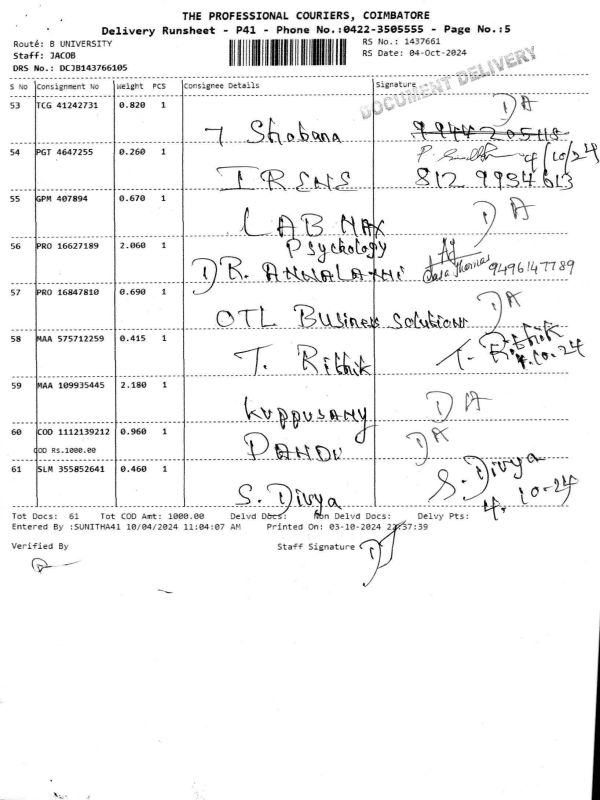 THE PROFESSIONAL COURIERS, COIMBATORE
Delivery Runsheet - P41 - Phone No.:0422-3505555 - Page No.:5
Route: B UNIVERSITY
RS No.: 1437661
Staff: JACOB
RS Date: 04-Oct-2024
DRS No.: DCJB143766105
DOCUMENT DELIVERY
S No Consignment No Weight PCS Consignee Details Signature
53 TCG 41242731 0.820 1 DA
Shobana
54 PGT 4647255 0.260 1 4/10/24
IRENE 812 9934 613
55 GPM 407894 0.670 1 DA
LAB NAX
56 PRO 16627189 2.060 1 Psychology
DR. ANNALAXMI 9496147789
57 PRO 16847810 0.690 1 DA
OTL Business Solutions
58 MAA 575712259 0.415 1 T. Rithik
T. Rithik 4.10.24
59 MAA 109935445 2.180 1
Kuppusamy DA
60 COD 1112139212 0.960 1 DA
COD Rs.1000.00 PANDU
61 SLM 355852641 0.460 1 S. Divya
S. Divya 4.10-24
Tot Docs: 61 Tot COD Amt: 1000.00 Delvd Docs: Non Delvd Docs: Delvy Pts:
Entered By :SUNITHA41 10/04/2024 11:04:07 AM Printed On: 03-10-2024 :37:39
Verified By Staff Signature